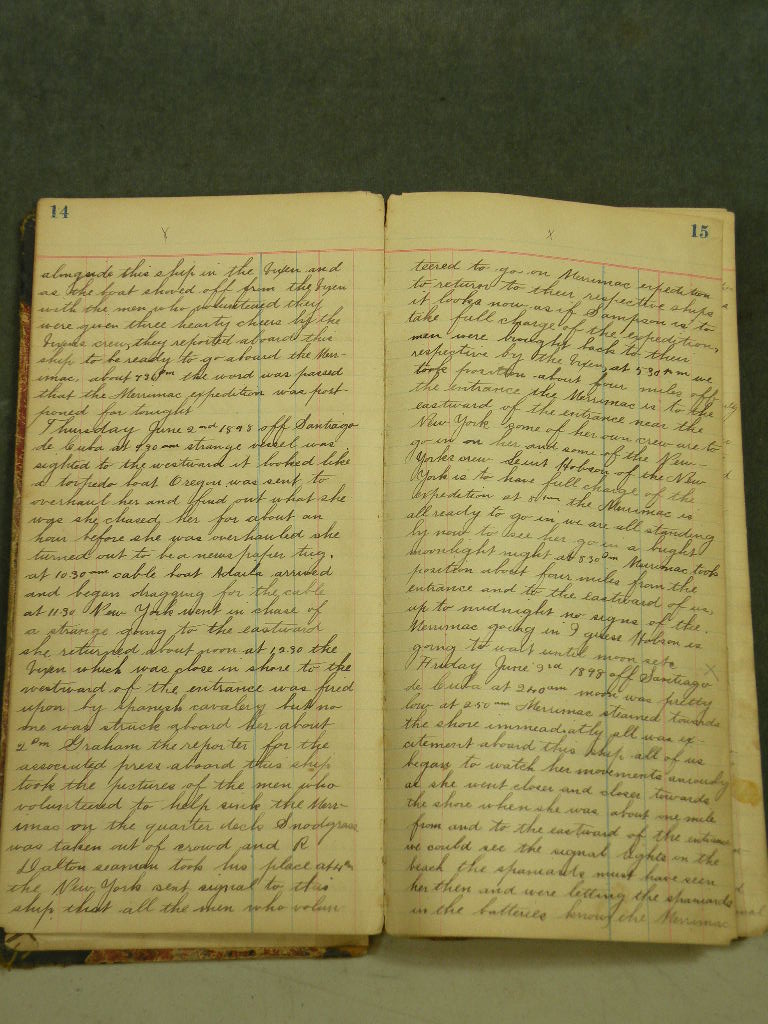 14
x
alongside this ship in the Vixen and
as the boat shoved off from the Vixen
with the men who volunteered they
were given three hearty cheers by the
Vixens crew, they reported aboard this
ship to be ready to go aboard the Merr-
imac. about 730 pm the word was passed
that the Merrimac expedition was post-
poned for tonight
Thursday June 2nd 1898 off Santiago
de Cuba at 930 am strange vessel was
sighted to the westward it looked like
a torpedo boat Oregon was sent to
overhaul her and find out what she
was she chased her for about an
hour before she was overhauled she
turned out to be a news paper tug.
at 10 30 am cable boat Adaila arrived
and began dragging for the cable
at 11.30 New York went in chase of
a strange going to the eastward
she returned about noon at 12.30 the
Vixen which was close in shore to the
westward of the entrance was fired
upon by spanish cavalery but no
one was struck aboard her about
2 pm Graham the reporter for the
associated press aboard this ship
took the pictures of the men who
volunteered to help sink the Merr-
imac on the quarter deck Snodgrass
was taken out of crowd and R
Dalton seaman took his place at 4 pm
the New York sent signal to this
ship that all the men who volun-
15
x
teered to go on Merrimac expedition
to return to their respective ships
it looks now as if Sampson is to
take full charge of the expedition,
men were brought back to their
respective by the Vixen at 530 pm we
took position about four miles off
the entrance the Merrimac is to the
eastward of the entrance near the
New York some of her own crew are to
go in on her and some of the New-
Yorks crew Leiut Hobson of the New
York is to have full charge of the
expedition at 8 pm the Merrimac is
all ready to go in we are all standing
by now to see her go in a bright
moonlight night at 830 pm Merrimac took
position about four miles from the
entrance and to the eastward of us,
up to midnight no signs of the
Merrimac going in I guess Hobson is
going to wait until moon sets
x
Friday June 3rd 1898 off Santiago
de Cuba at 240 am moon was pretty
low at 250 am Merrimac steamed towards
the shore immeadiatly all was ex-
citement aboard this ship all of us
began to watch her movements anxiously
as she went closer and closer towards
the shore when she was about one mile
from and to the eastward of the entrance
we could see the signal lights on the
beach the spaniards must have seen
her then and were letting the spaniards
in the batteries know the Merrimac